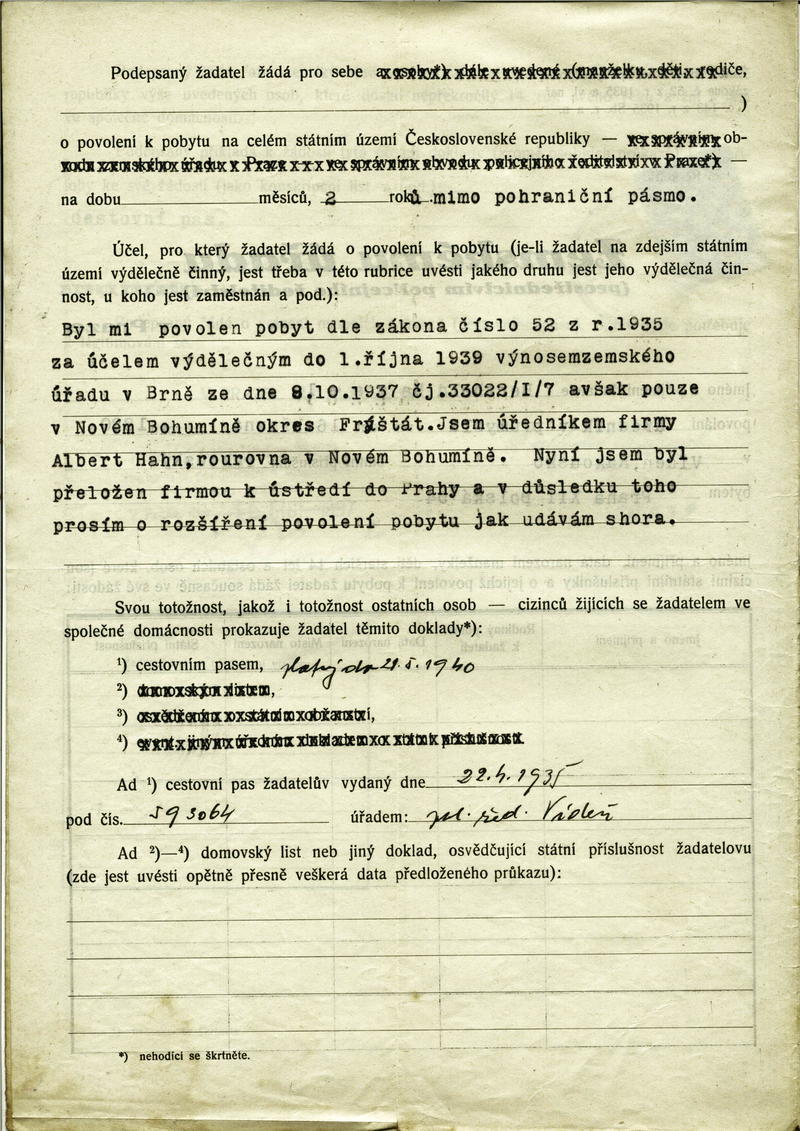 Podepsaný žadatel žádá pro sebe a osoby*) dále uvedené (manželku, děti, rodiče,
)
o povolení k pobytu na celém státním území Československé republiky — ve správním ob-
vodu zemského úřadu v Praze — ve správním obvodu policejního ředitelství v Praze*) —
na dobu měsíců, 2 roků mimo pohraniční pásmo.
Účel, pro který žadatel žádá o povolení k pobytu (je-li žadatel na zdejším státním
území výdělečně činný, jest třeba v této rubrice uvésti jakého druhu jest jeho výdělečná čin-
nost, u koho jest zaměstnán a pod.):
Byl mi povolen pobyt dle zákona číslo 52 z r.1935
za účelem výdělečným do 1.října 1939 výnosemzemského
úřadu v Brně ze dne 8.10.1937 čj.33022/I/7 avšak pouze
v Novém Bohumíně okres Fryštát.Jsem úředníkem firmy
Albert Hahn,rourovna v Novém Bohumíně. Nyní jsem byl
přeložen firmou k ústředí do Prahy a v důsledku toho
prosím o rozšíření povolení pobytu jak udávám shora.
Svou totožnost, jakož i totožnost ostatních osob — cizinců žijících se žadatelem ve
společné domácnosti prokazuje žadatel těmito doklady*):
¹) cestovním pasem, platný do 21.5.1940
²) domovským listem,
³) osvědčením o státním občanství,
⁴)
Ad ¹) cestovní pas žadatelův vydaný dne 22.4.1935
pod čís. 593064 úřadem: pol. řed. Vídeň
Ad ²)—⁴) domovský list neb jiný doklad, osvědčující státní příslušnost žadatelovu
(zde jest uvésti opětně přesně veškerá data předloženého průkazu):
*) nehodící se škrtněte.